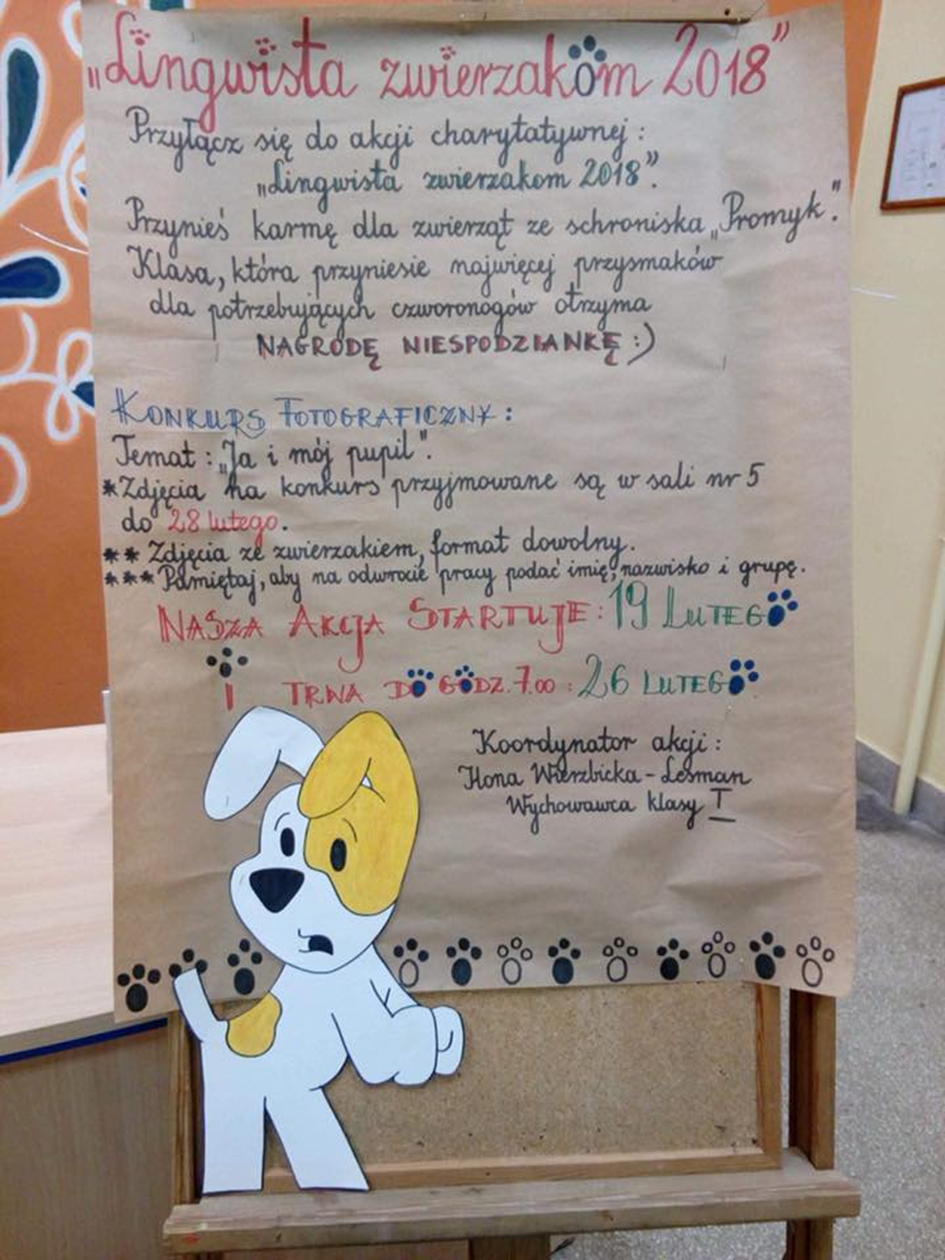 „Lingwista zwierzakom 2018"
Przyłącz się do akcji charytatywnej:
„Lingwista zwierzakom 2018".
Przynieś karmę dla zwierząt ze schroniska „Promyk".
Klasa, która przyniesie najwięcej przysmaków
dla potrzebujących czworonogów otrzyma
NAGRODĘ NIESPODZIANKĘ :)
KONKURS FOTOGRAFICZNY:
Temat: „Ja i mój pupil".
*Zdjęcia na konkurs przyjmowane są w sali nr 5
do 28 lutego.
** Zdjęcia ze zwierzakiem, format dowolny.
*** Pamiętaj, aby na odwrocie pracy podać imię, nazwisko i grupę.
NASZA AKCJA STARTUJE: 19 LUTEGO
I TRWA DO GODZ. 7.00: 26 LUTEGO.
Koordynator akcji:
Ilona Wierzbicka-Lesman
Wychowawca klasy I